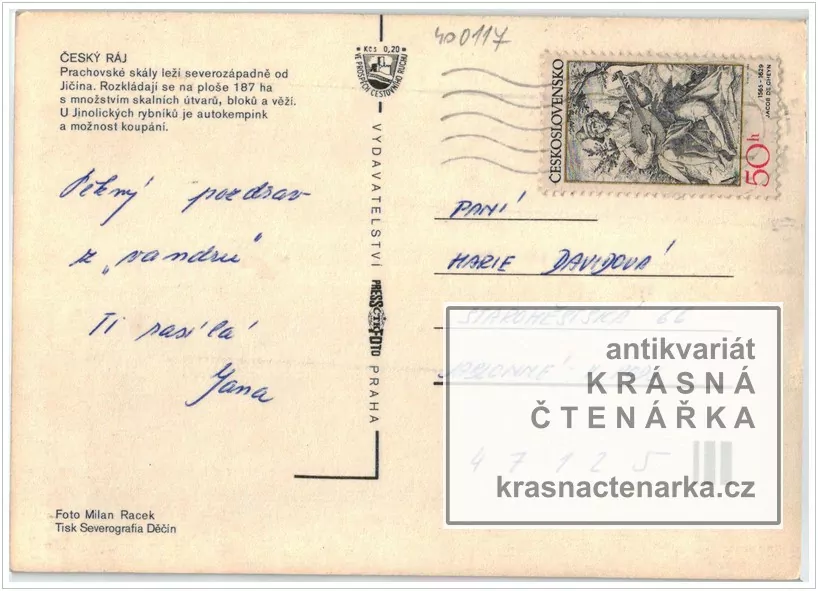 400117
ČESKÝ RÁJ
Prachovské skály leží severozápadně od
Jičína. Rozkládají se na ploše 187 ha
s množstvím skalních útvarů, bloků a věží.
U Jinolických rybníků je autokempink
a možnost koupání.
Kčs 0,20
VE PROSPĚCH CESTOVNÍHO RUCHU
ČESKOSLOVENSKO
1565-1629
JACOB DE GHEYN
50h
Pěkný pozdrav
z „vandru"
Ti zasílá
Jana
VYDAVATELSTVÍ PRESSFOTO PRAHA
ČTK
PANÍ
MARIE DAVIDOVÁ
STAROMĚSTSKÁ 66
JABLONNÉ V POD.
47125
antikvariát
KRÁSNÁ
ČTENÁŘKA
krasnactenarka.cz
Foto Milan Racek
Tisk Severografia Děčín